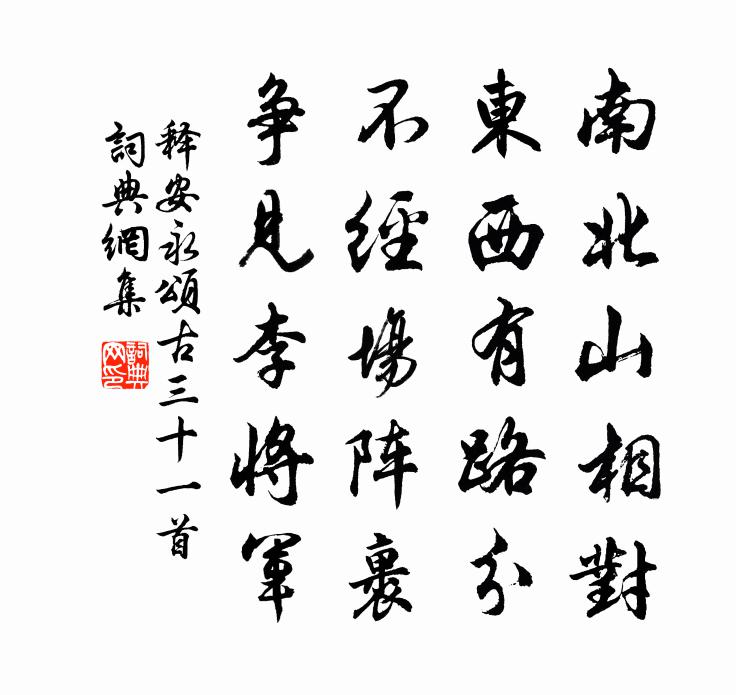 南北山相對
東西有路分
不經場阵裏
争見李將軍
释安永頌古三十一首
詞典網集
詞典网印